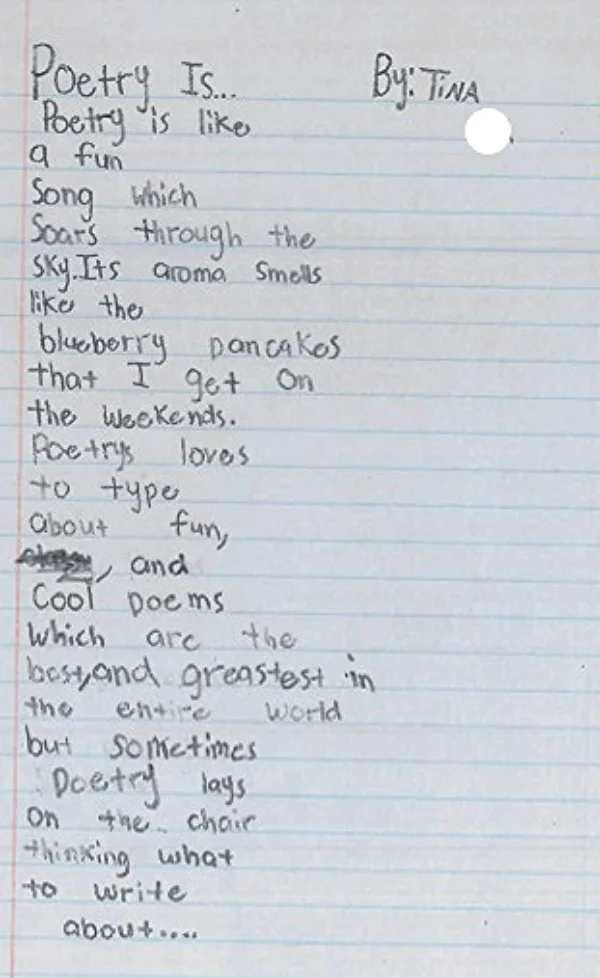 Poetry Is... By: TINA
Poetry is like
a fun
Song which
Soars through the
sky. Its aroma smells
like the
blueberry pancakes
that I get on
the weekends.
Poetrys loves
to type
about fun,
, and
Cool poems
which are the
best, and greastest in
the entire world
but sometimes
Poetry lays
on the chair
thinking what
to write
about....